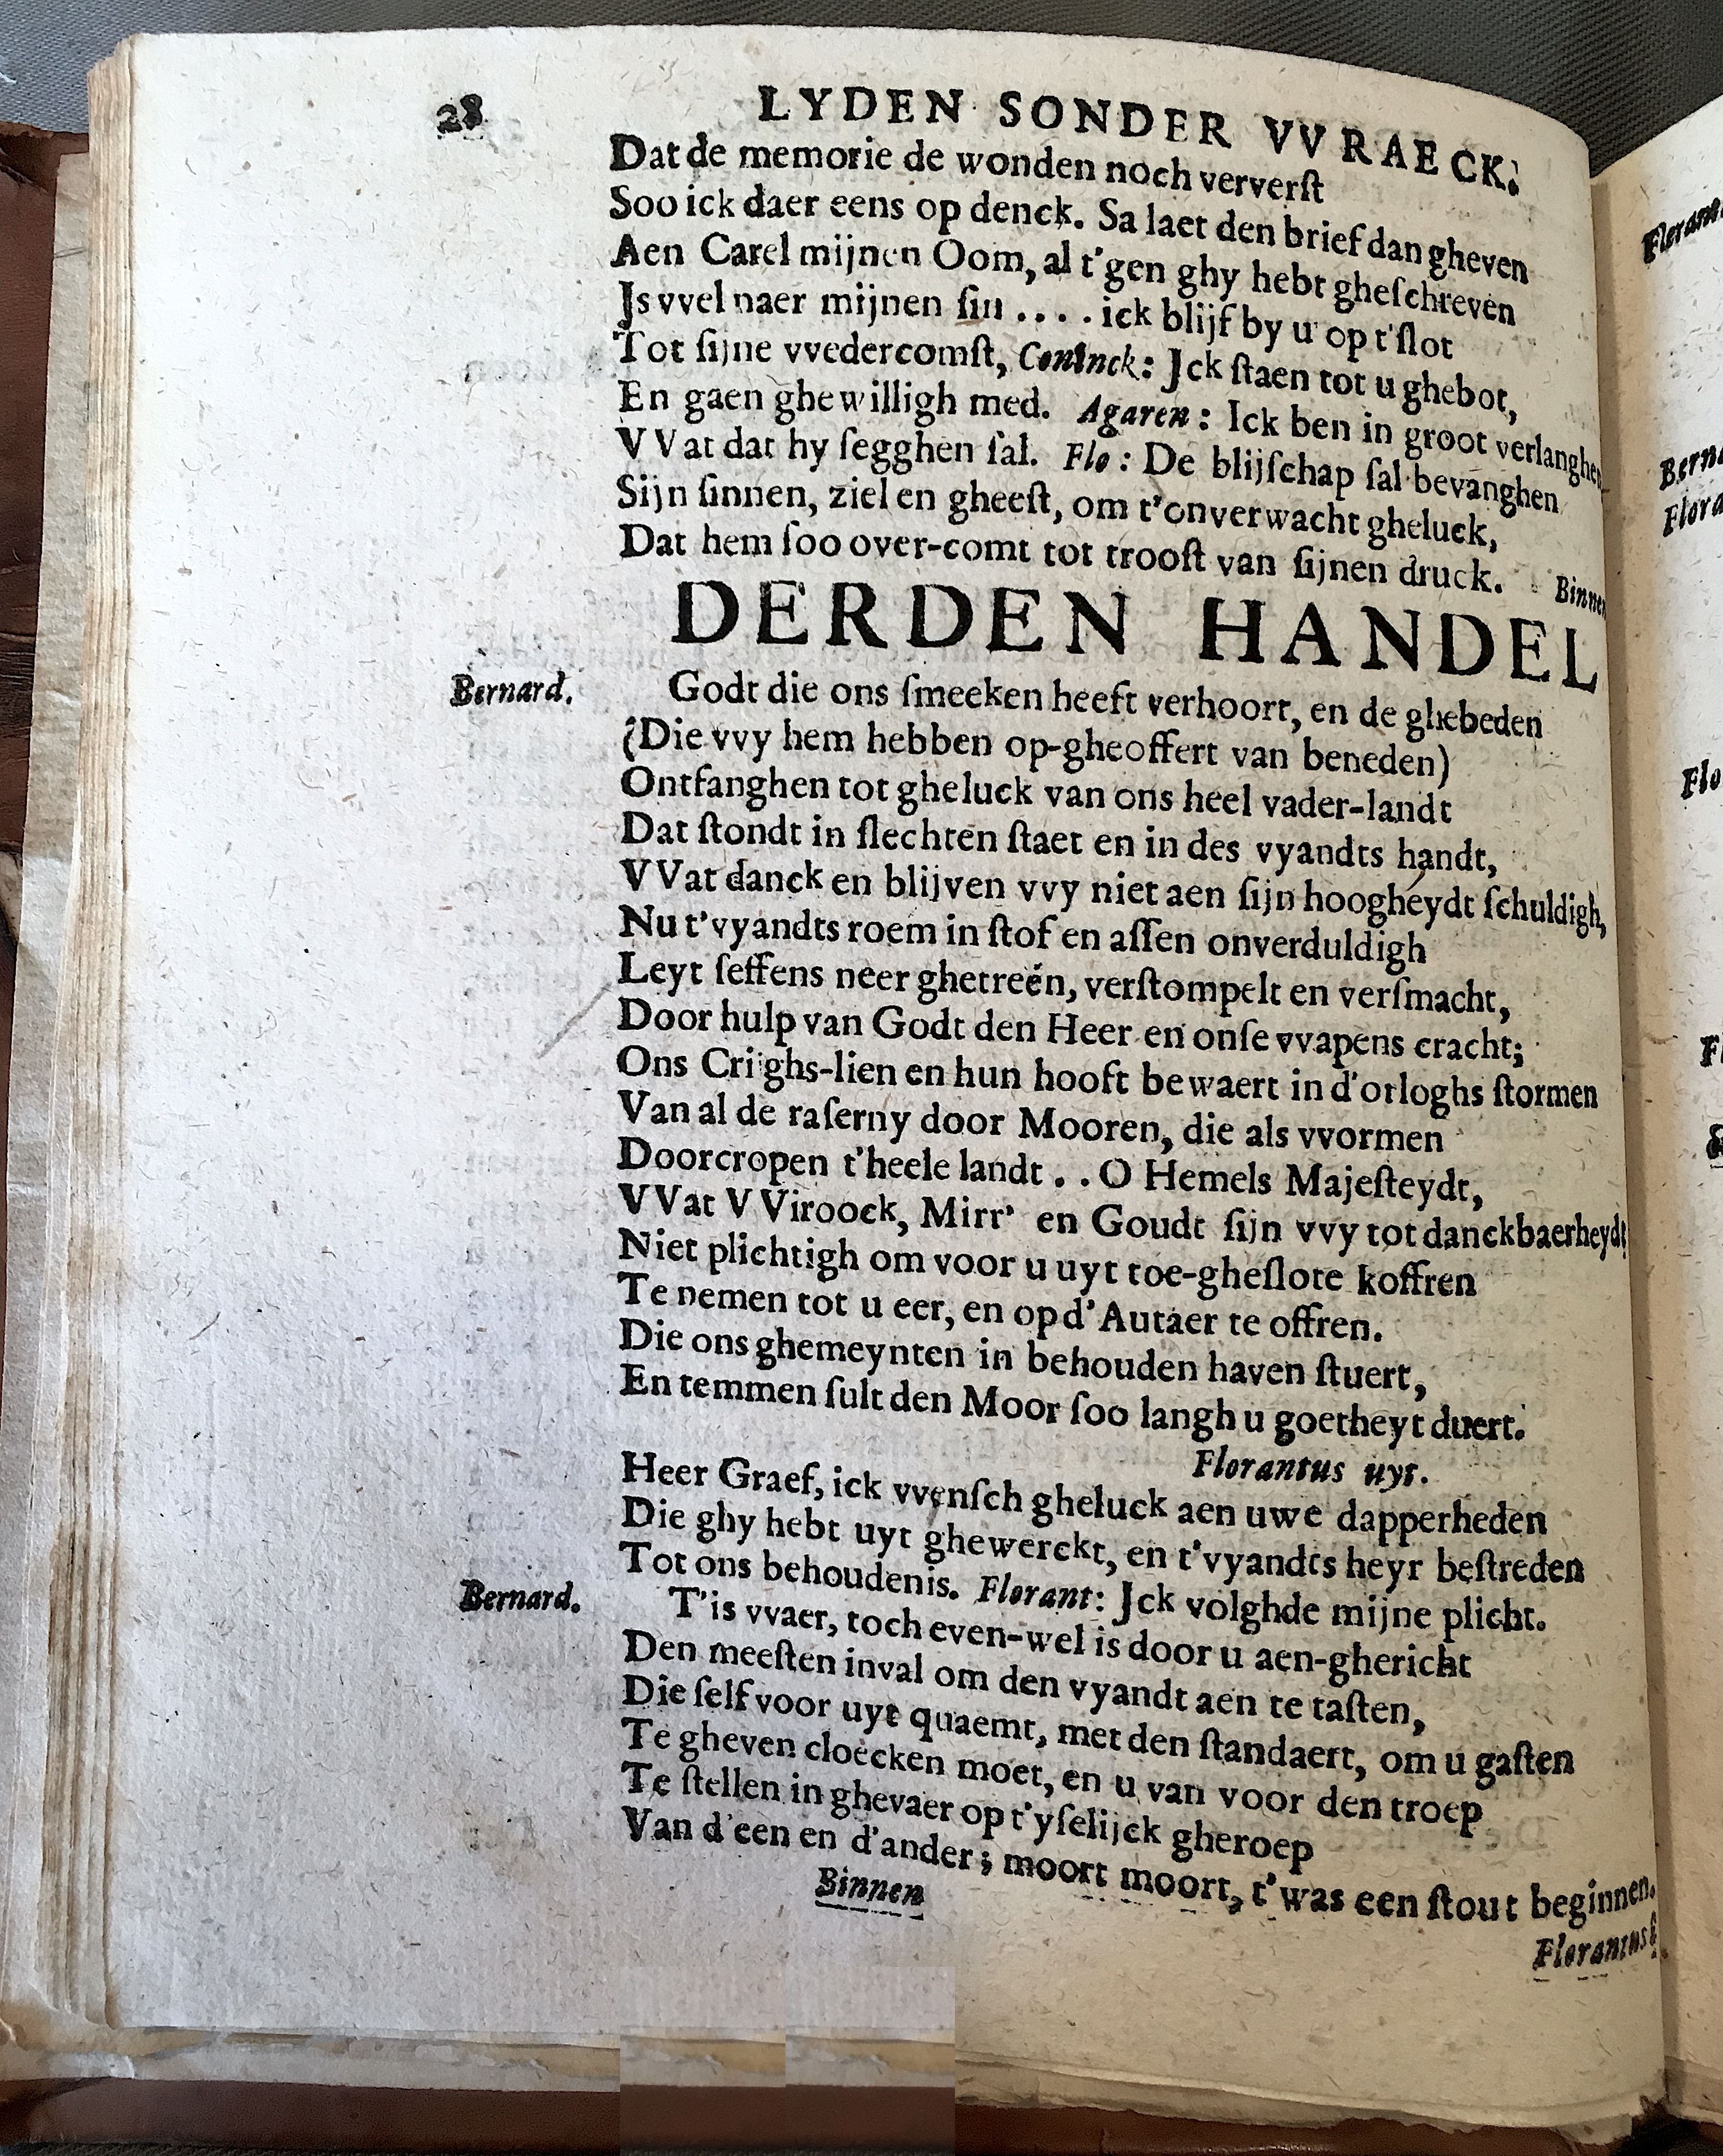 28 LYDEN SONDER VVRAECK.
Dat de memorie de wonden noch ververſt
Soo ick daer eens op denck. Sa laet den brief dan gheven
Aen Carel mijnen Oom, al t'gen ghy hebt gheſchreven
Js vvel naer mijnen ſin .... ick blijf by u op t'ſlot
Tot ſijne vvedercomſt, Coninck: Jck ſtaen tot u ghebot,
En gaen ghewilligh med. Agaren: Ick ben in groot verlanghen
VVat dat hy ſegghen ſal. Flo: De blijſchap ſal bevanghen
Sijn ſinnen, ziel en gheeſt, om t'onverwacht gheluck,
Dat hem ſoo over-comt tot trooſt van ſijnen druck. Binnen
DERDEN HANDEL
Bernard. Godt die ons ſmeeken heeft verhoort, en de ghebeden
(Die vvy hem hebben op-gheoffert van beneden)
Ontfanghen tot gheluck van ons heel vader-landt
Dat ſtondt in ſlechten ſtaet en in des vyandts handt,
VVat danck en blijven vvy niet aen ſijn hoogheydt ſchuldigh,
Nu t'vyandts roem in ſtof en aſſen onverduldigh
Leyt ſeffens neer ghetreén, verſtompelt en verſmacht,
Door hulp van Godt den Heer en onſe vvapens cracht;
Ons Crijghs-lien en hun hooft bewaert in d'orloghs ſtormen
Van al de raſerny door Mooren, die als vvormen
Doorcropen t'heele landt .. O Hemels Majeſteydt,
VVat VViroock, Mirr' en Goudt ſijn vvy tot danckbaerheydt
Niet plichtigh om voor u uyt toe-gheſlote koffren
Te nemen tot u eer, en op d'Autaer te offren.
Die ons ghemeynten in behouden haven ſtuert,
En temmen ſult den Moor ſoo langh u goetheyt duert.
Florantus uyt.
Heer Graef, ick vvenſch gheluck aen uwe dapperheden
Die ghy hebt uyt ghewerckt, en t'vyandts heyr beſtreden
Tot ons behoudenis. Florant: Jck volghde mijne plicht.
Bernard. T'is vvaer, toch even-wel is door u aen-ghericht
Den meeſten inval om den vyandt aen te taſten,
Die ſelf voor uyt quaemt, met den ſtandaert, om u gaſten
Te gheven cloecken moet, en u van voor den troep
Te ſtellen in ghevaer op t'yſelijck gheroep
Van d'een en d'ander; moort moort, t'was een ſtout beginnen.
Binnen
Florantus
Bern
Flora
Flo